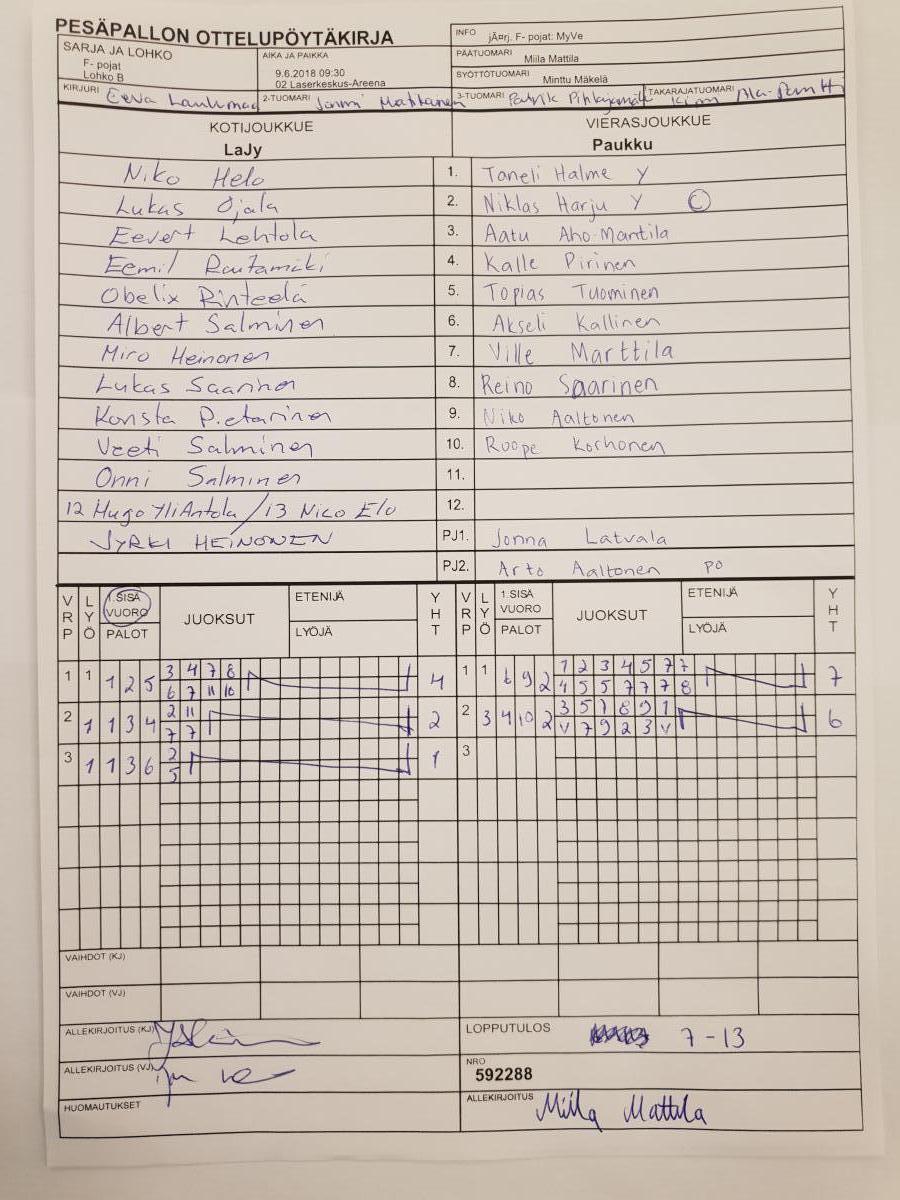 PESÄPALLON OTTELUPÖYTÄKIRJA
SARJA JA LOHKO
F- pojat
Lohko B
AIKA JA PAIKKA
9.6.2018 09:30
02 Laserkeskus-Areena
INFO jÃ¤rj. F- pojat: MyVe
PÄÄTUOMARI Miila Mattila
SYÖTTÖTUOMARI Minttu Mäkelä
KIRJURI Eeva
2-TUOMARI Jommi Matikainen
3-TUOMARI Patrik
TAKARAJATUOMARI Kim Ala-Pentti
KOTIJOUKKUE VIERASJOUKKUE
LaJy Paukku
Niko Helo 1. Taneli Halme Y
Lukas Ojala 2. Niklas Harju Y C
Eevert Lehtola 3. Aatu Aho-Mantila
Eemil Rautamäki 4. Kalle Pirinen
Obelix Rinteelä 5. Topias Tuominen
Albert Salminen 6. Akseli Kallinen
Miro Heinonen 7. Ville Marttila
Lukas Saarinen 8. Reino Saarinen
Konsta Pietarinen 9. Niko Aaltonen
Veeti Salminen 10. Roope Korhonen
Onni Salminen 11.
12 Hugo YliAntola / 13 Nico Elo 12.
JYRKI HEINONEN PJ1. Jonna Latvala
PJ2. Arto Aaltonen PO
VRP LYÖ 1.SISÄ VUORO PALOT JUOKSUT ETENIJÄ LYÖJÄ YHT VRP LYÖ 1.SISÄ VUORO PALOT JUOKSUT ETENIJÄ LYÖJÄ YHT
1 1 1 2 5 3 4 7 8 4 1 1 6 9 2 1 2 3 4 5 7 7 7
6 7 11 10 4 5 5 7 7 7 8
2 1 1 3 4 2 11 2 2 3 4 10 2 3 5 7 8 9 1 6
7 7 V 7 9 2 3 V
3 1 1 3 6 2 1 3
5
VAIHDOT (KJ)
VAIHDOT (VJ)
ALLEKIRJOITUS (KJ)
LOPPUTULOS 7-13
ALLEKIRJOITUS (VJ)
NRO
592288
HUOMAUTUKSET
ALLEKIRJOITUS Miila Mattila